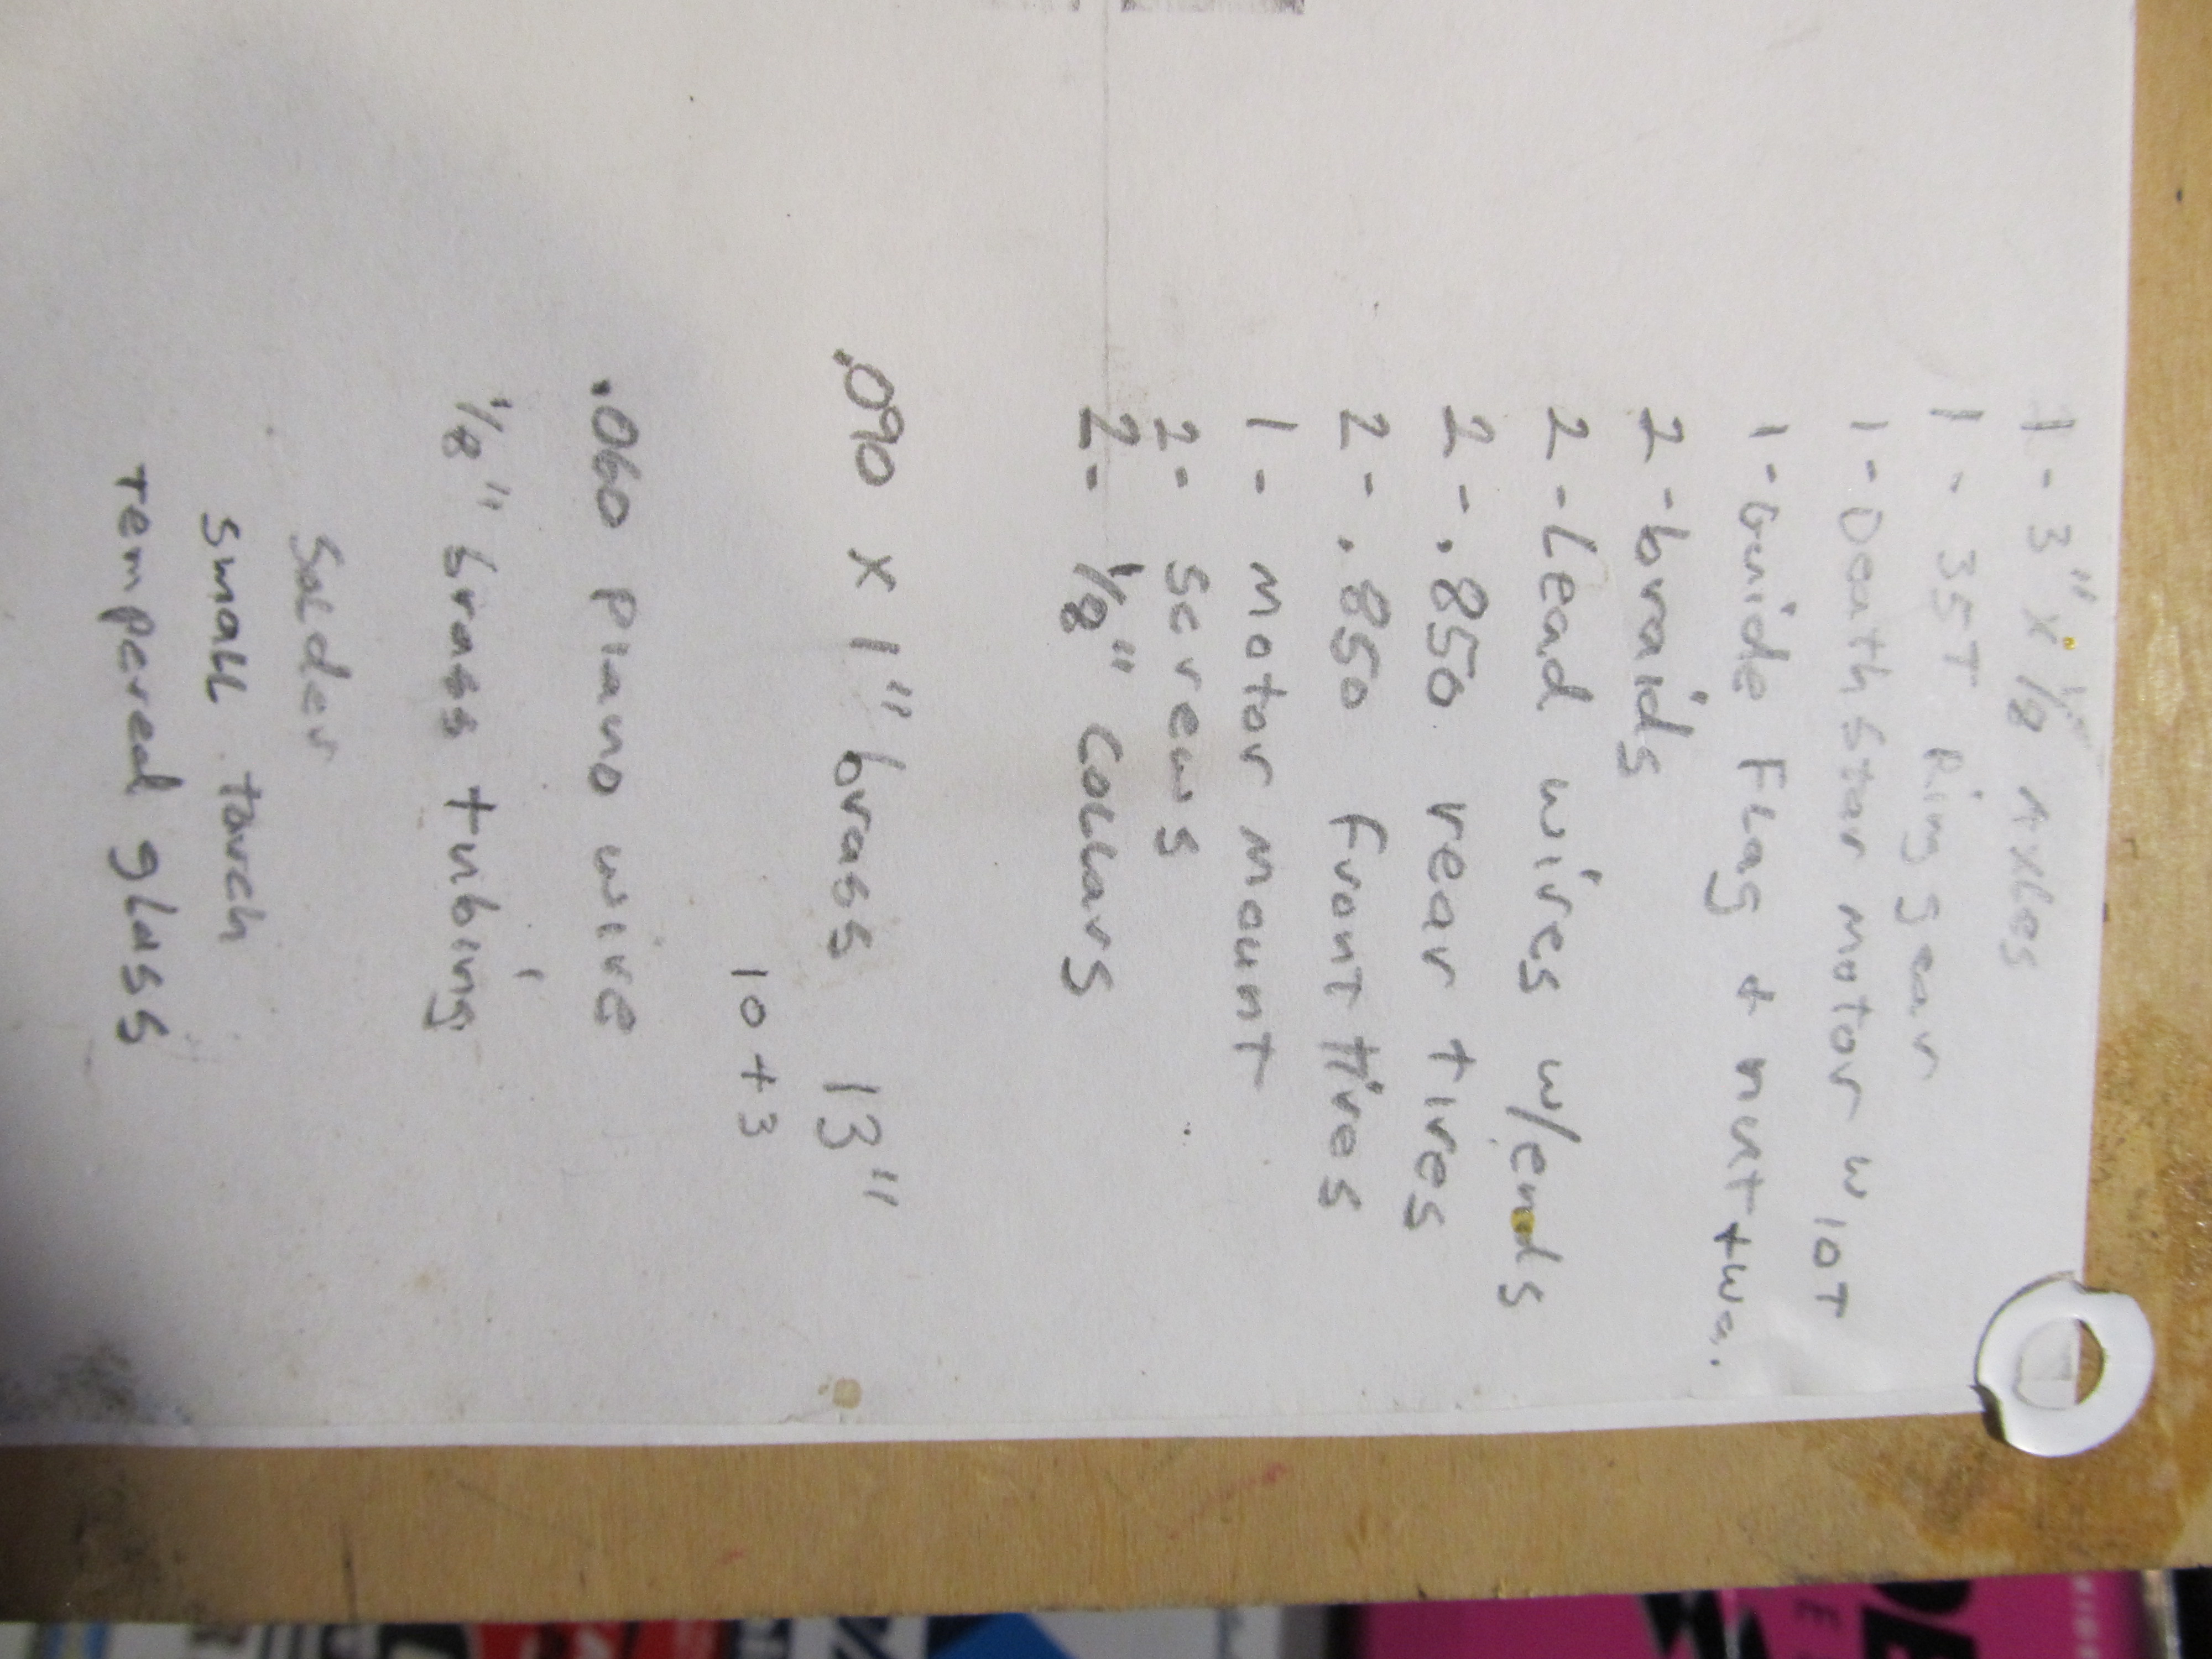 1 - 3" x 1/8 Axles
1 - 35T Ring gear
1 - Death Star motor w 10T
1 - Guide Flag + nut + wa.
2 - braids
2 - Lead wires w/ends
2 - .850 rear tires
2 - .850 front tires
1 - motor mount
2 - screws
2 - 1/8" Collars
.090 x 1" brass 13"
10 + 3
.060 piano wire
1/8" brass tubing
Solder
small torch
Tempered glass